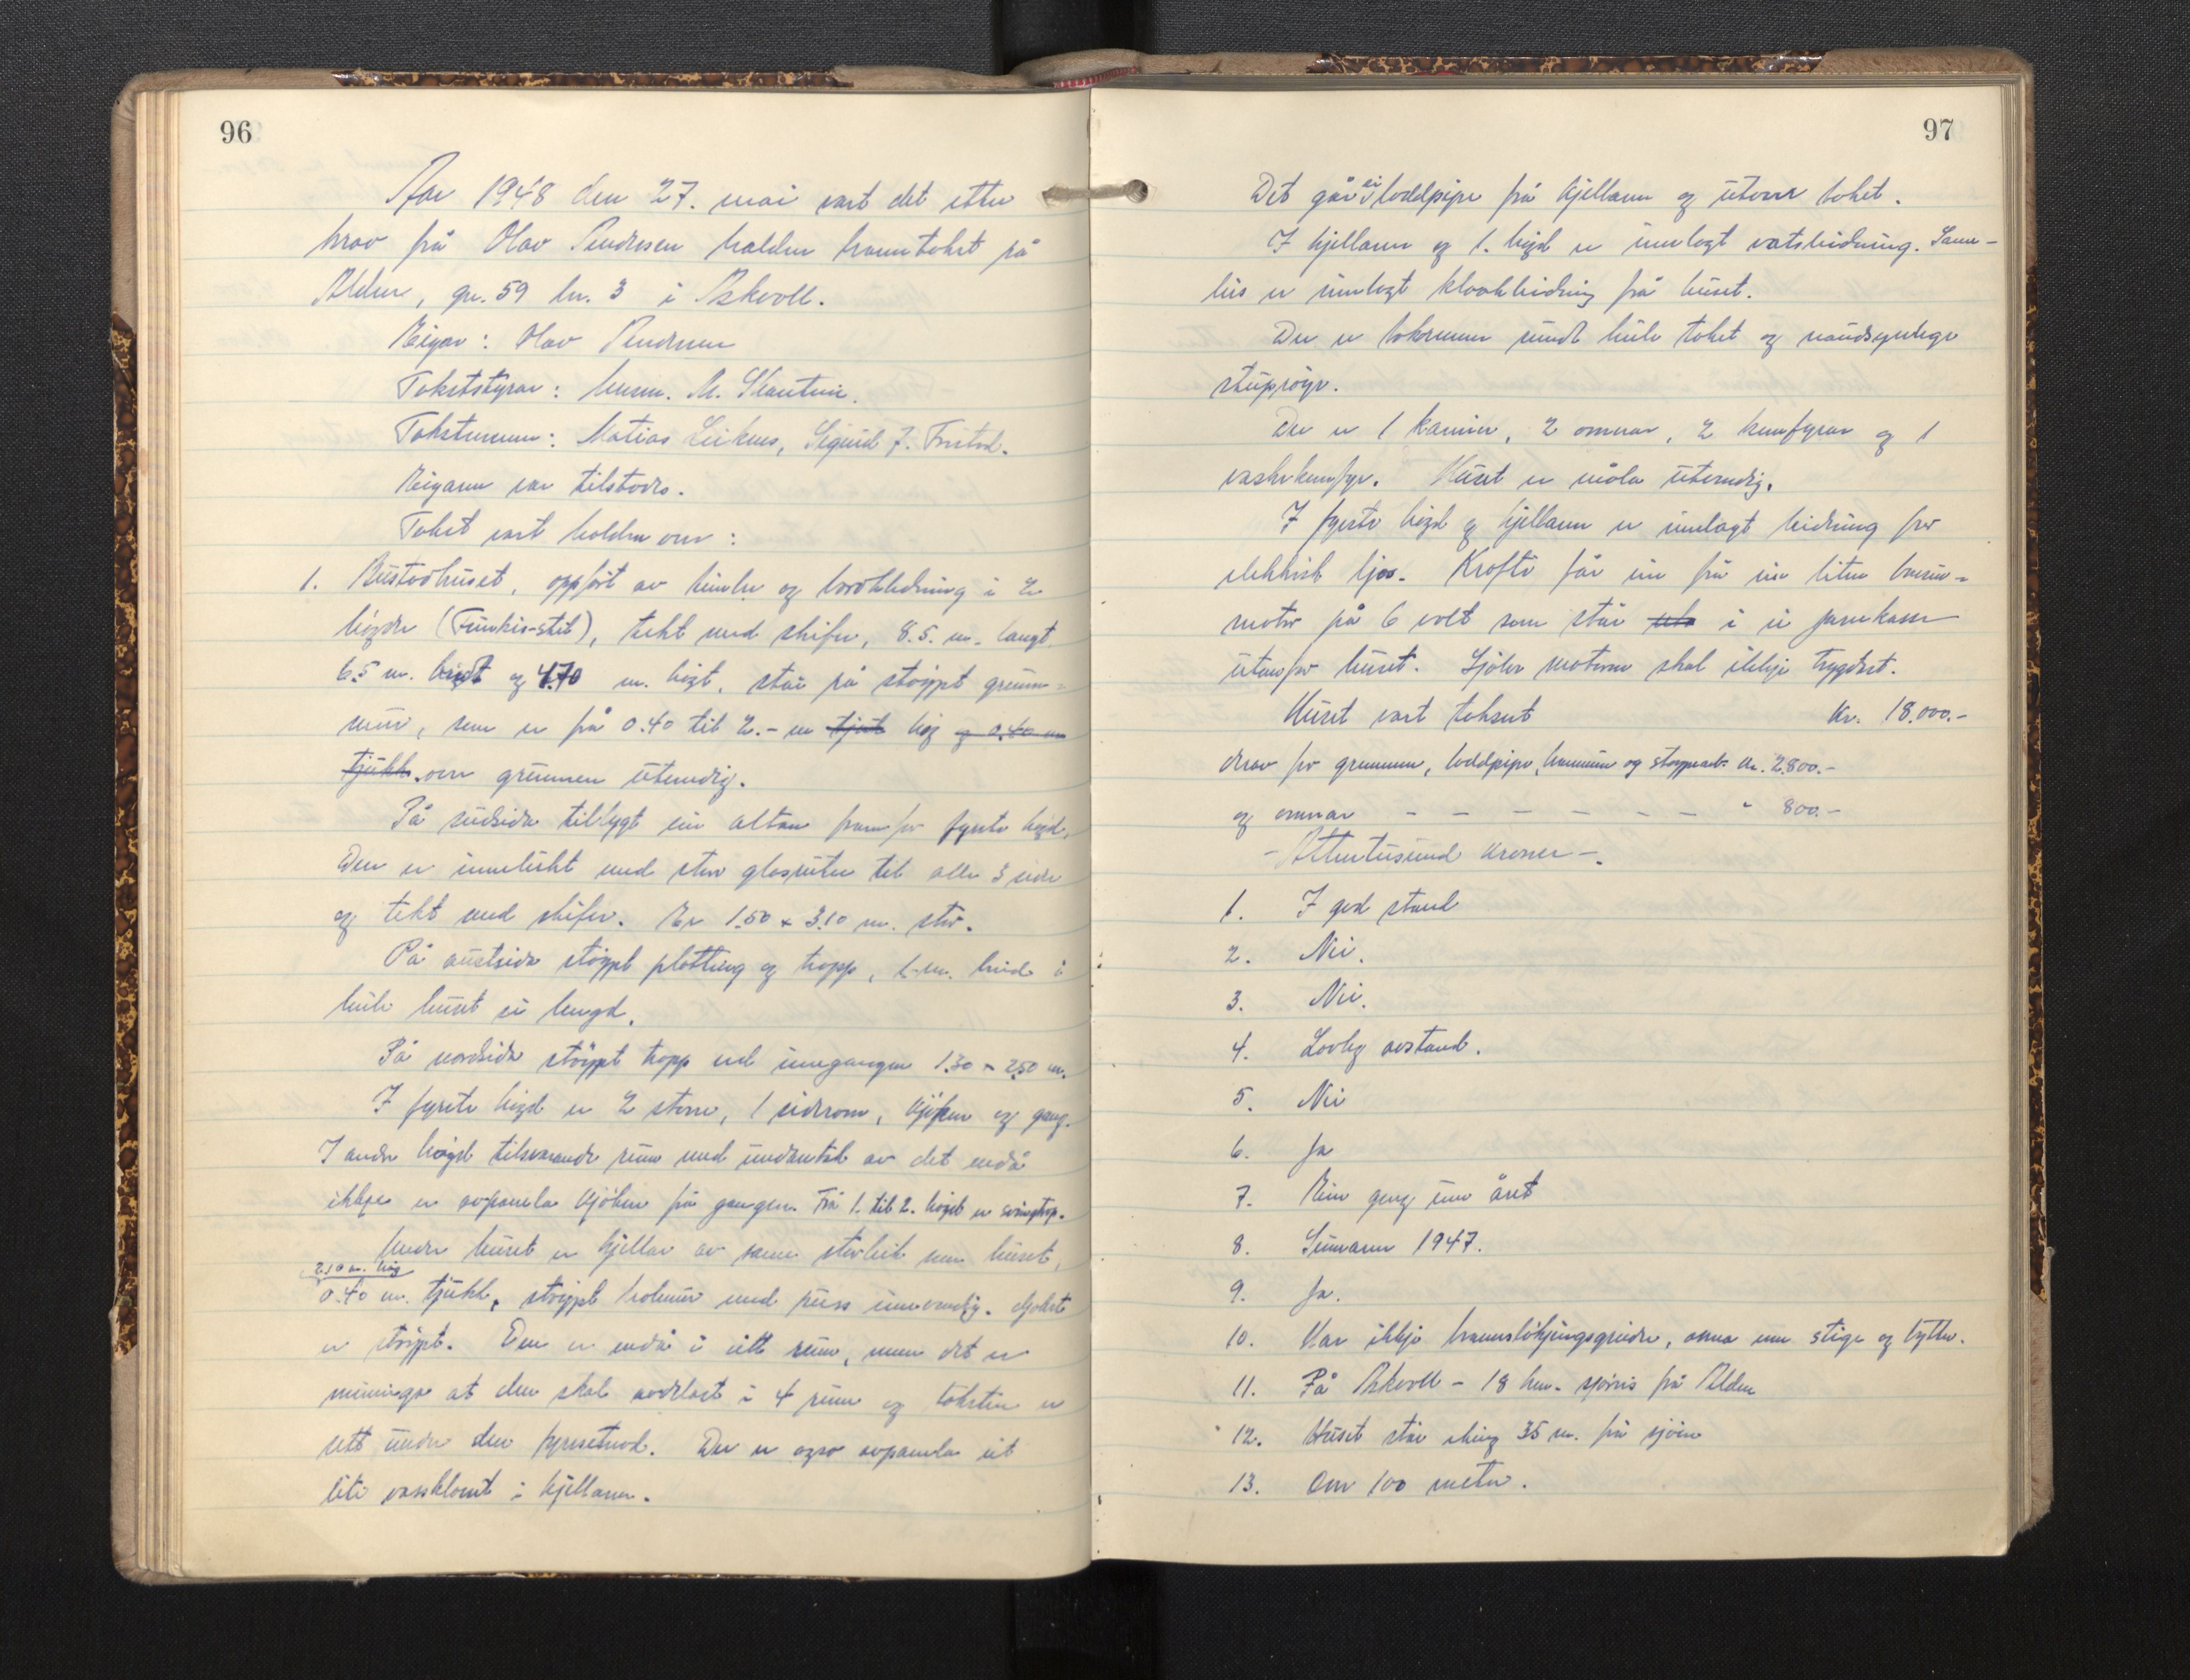 96
År 1948 den 27. mai vart det etter
krav frå Olav Andresen halden branntakst på
Alden, gn. 59 bn. 3 i Askvoll.
Eigar: Olav Andresen
Takststyrar: lensm. M.
Takstmenn: Matias Leiknes, Sigurd J.
Eigaren var tilstades.
Takst vart halden over:
1. Bustadhuset, oppført av bindv. og bordkledning i 2
høgder (Funkis-stil), tekt med skifer, 8.5. m. langt
6.5 m. breidt og 4.70 m. høgt, står på støypt grunn-
mur, som er frå 0.40 til 2.- m tjukk høg og 0.40 m
tjukk over grunnen utvendig.
På sudsida tilbygt ein altan framfor fyrste høgd.
Den er innelukt med store glasruter til alle 3 sider
og tekt med skifer. Er 1.50 x 3.10 m. stor.
På austsida støypt platting og trapp, 1.- m. breide i
heile huset si lengd.
På nordsida støypt trapp ved inngangen 1.30 x 2.50 m.
I fyrste høgd er 2 stover, 1 siderom, kjøken og gang.
I andre høgd tilsvarande rum med undantak av det endå
ikkje er avpanela kjøken frå gangen. Frå 1. til 2. høgd er svingtrap.
Under huset er kjellar av same storleik som huset,
2.10 m. høg
0.40 m. tjukk, støypt holmur med puss innvendig. Golvet
er støypt. Den er endå i eitt rum, men det er
meininga at den skal avdelast i 4 rum og taksten er
sett under den fyresetnad. Der er også avpanela eit
lite vassklosett i kjellaren.
97
Det går ei loddpipe frå kjellaren og utover taket.
I kjellaren og 1. høgd er innlagt vatsleidning. Same-
leis er innlagt kloakkleidning frå huset.
Der er takrenner rundt heile taket og naudsynlege
stuprøyr.
Der er 1 kamin, 2 omnar, 2 komfyrar og 1
vaskekomfyr. Huset er måla utvendig.
I fyrste høgd og kjellaren er innlagt leidning for
elektrisk ljos. Krafti får ein frå ein liten bensin-
motor på 6 volt som står ute i ei jarnkasse
utanfor huset. Sjølve motoren skal ikkje trygdast.
Huset vart taksert Kr. 18.000.-
derav for grunnmur, loddpipe, brannmur og støypearb. kr. 2.800.-
og omnar - - - - - - " 800.-
- Attentusund kroner -.
1. I god stand
2. Nei.
3. Nei.
4. Lovleg avstand.
5. Nei
6. Ja
7. Ein gang um året
8. Sumaren 1947.
9. Ja.
10. Har ikkje brannsløkjingsgreider, anna enn stige og bytter.
11. På Askvoll - 18 km. sjøveis frå Alden
12. Huset står kring 35 m. frå sjøen
13. Over 100 meter.